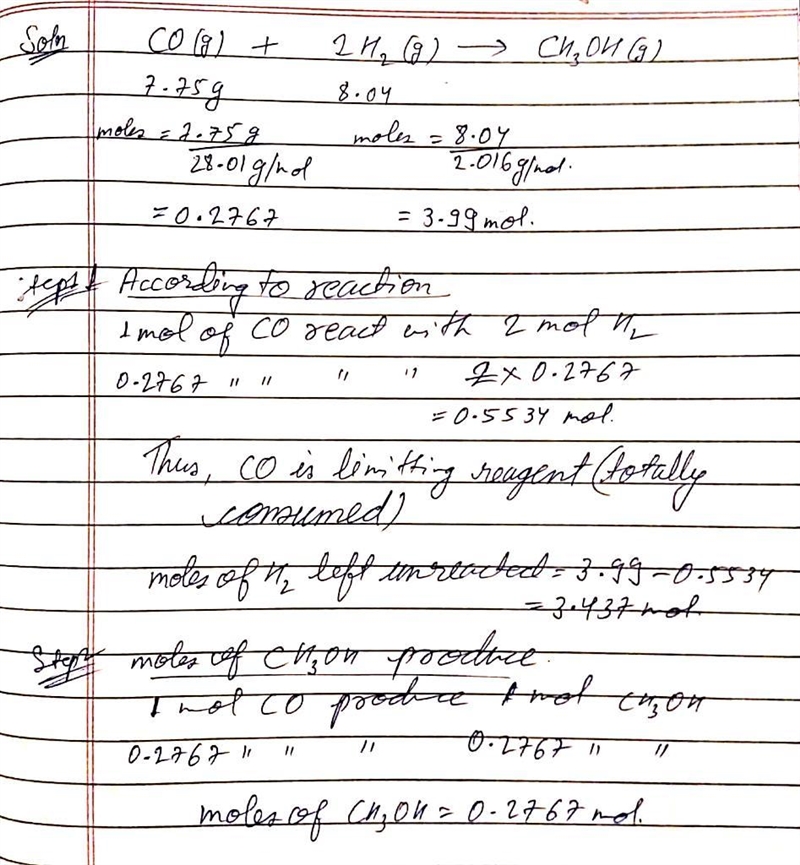 Soln CO(g) + 2H₂(g) → CH₃OH(g)
7.75g 8.04
moles = 7.75g / 28.01g/mol moles = 8.04 / 2.016g/mol.
= 0.2767 = 3.99 mol.
Step1 According to reaction
1 mol of CO react with 2 mol H₂
0.2767 " " " " 2 × 0.2767
= 0.5534 mol.
Thus, CO is limitting reagent (totally
consumed)
moles of H₂ left unreacted = 3.99 - 0.5534
= 3.437 mol
Step2 moles of CH₃OH produce.
1 mol CO produce 1 mol CH₃OH
0.2767 " " " 0.2767 " "
moles of CH₃OH = 0.2767 mol.